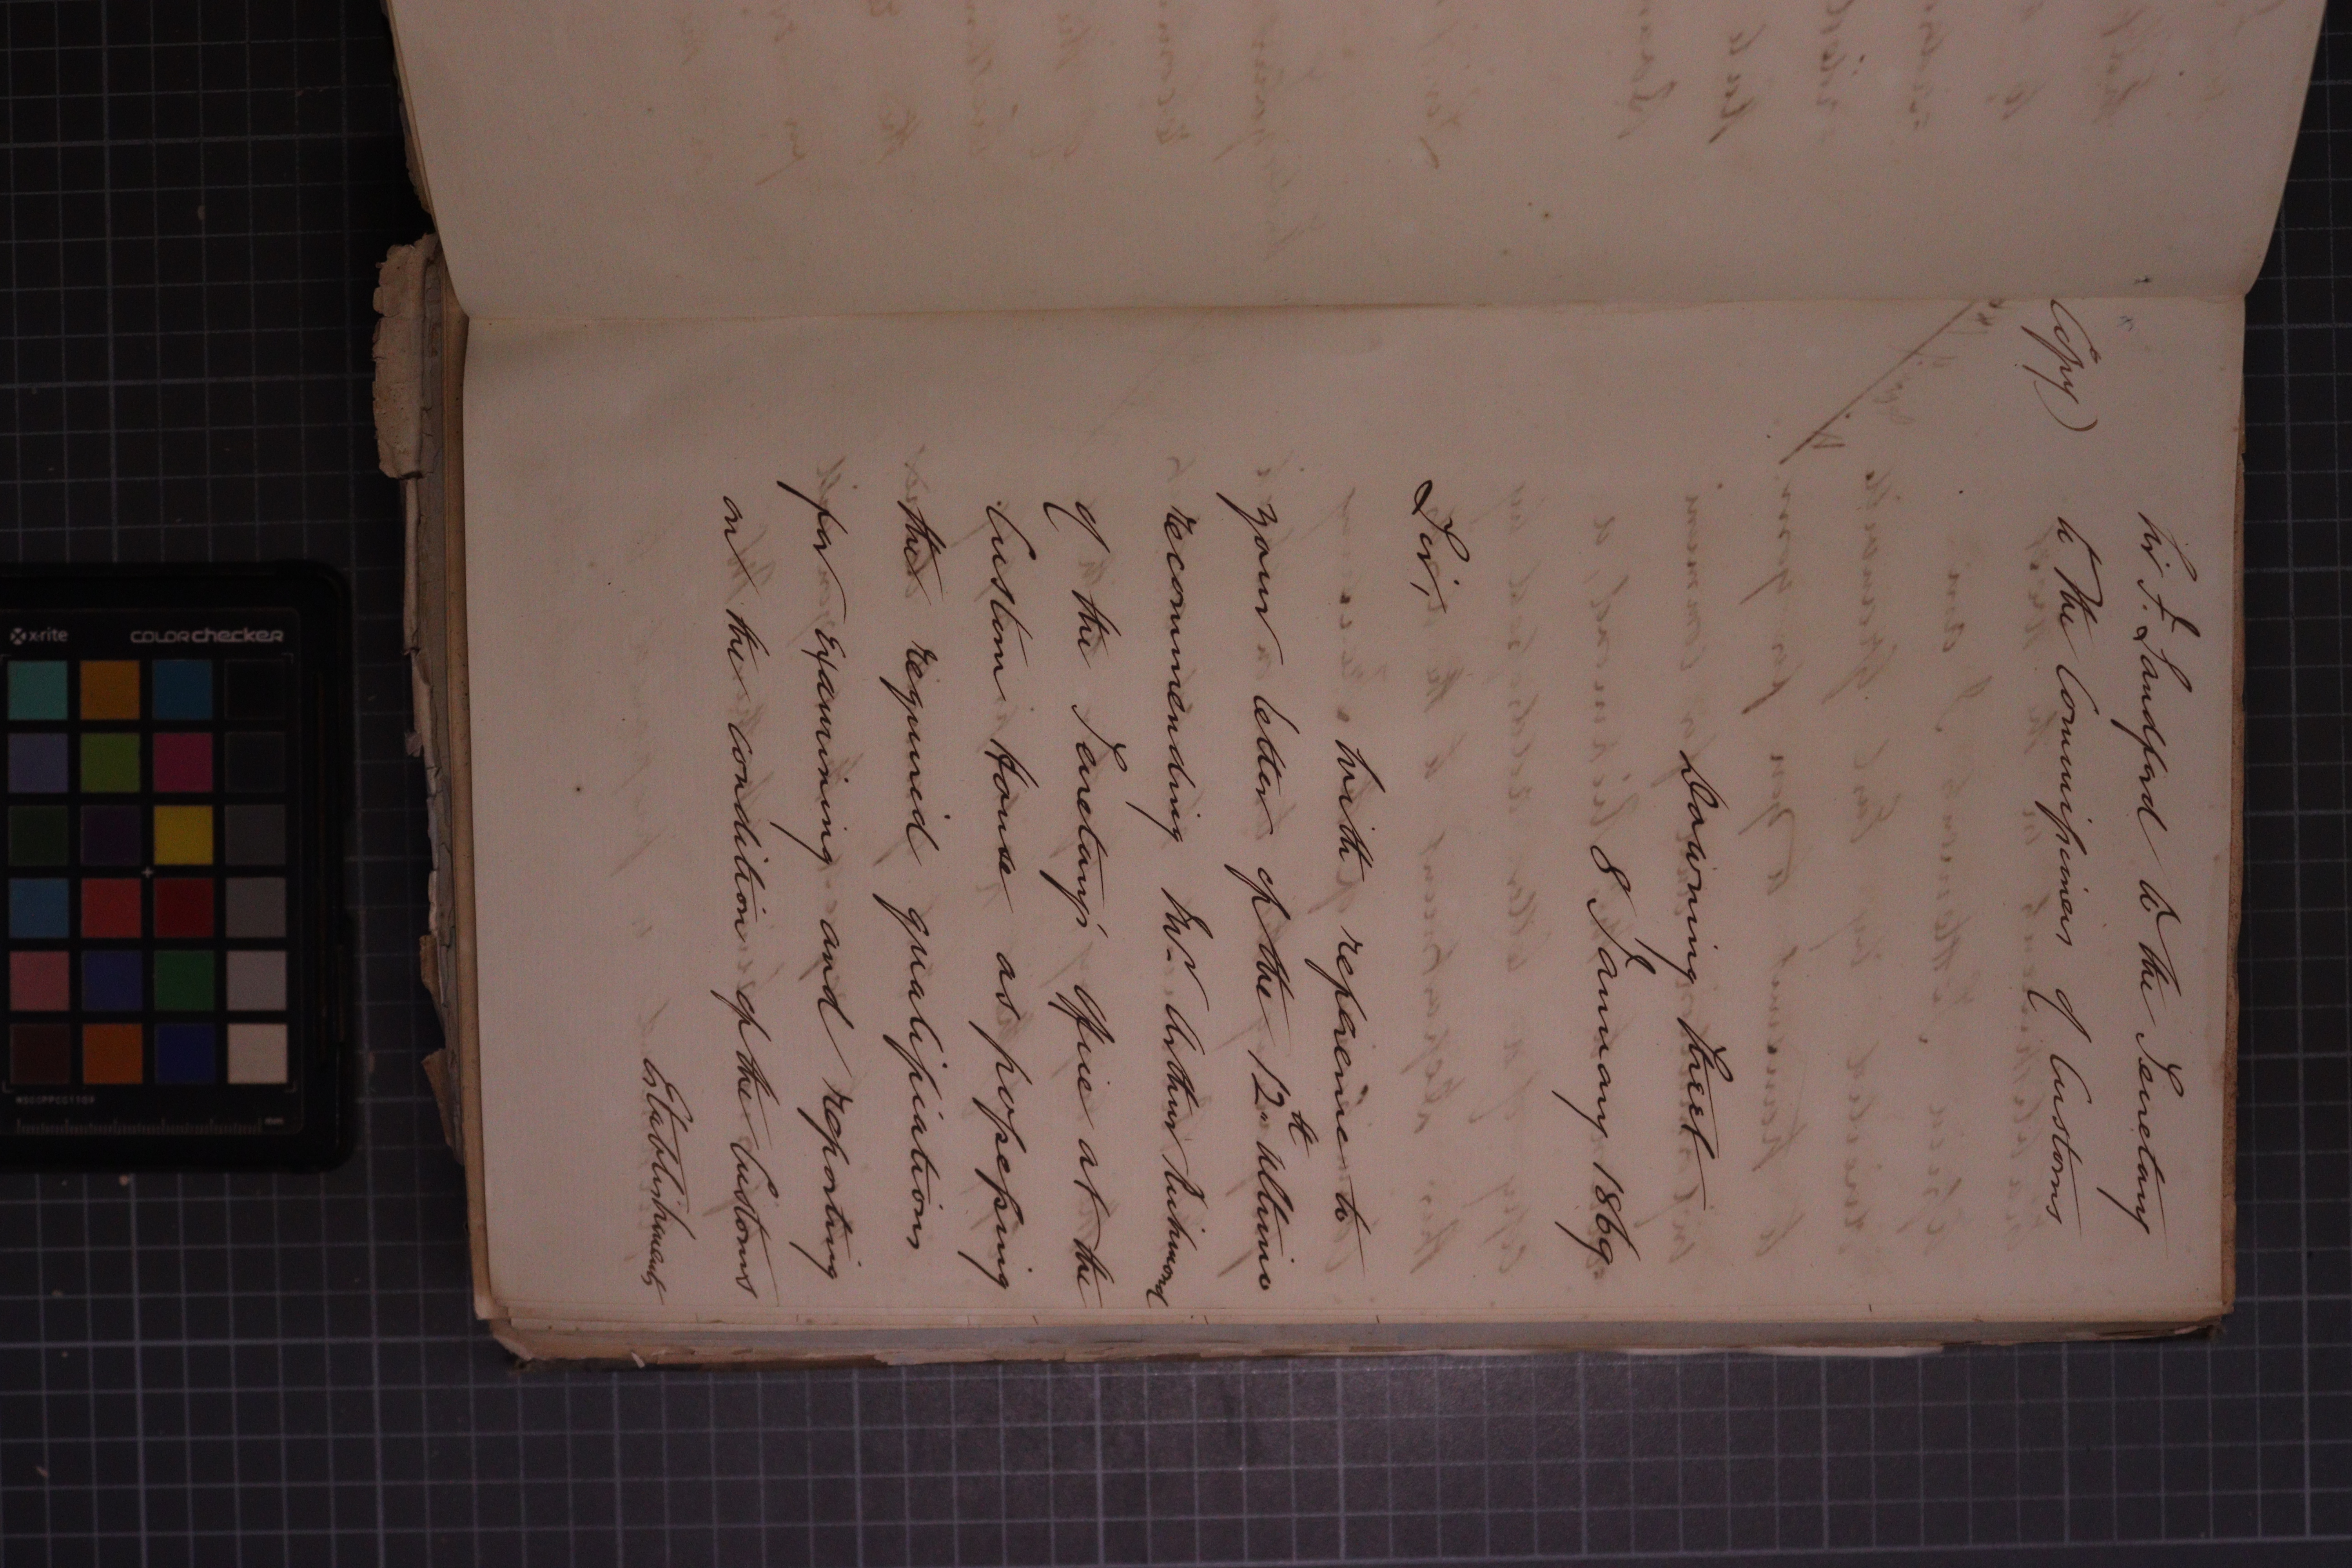 Sir F. Sandford to the Secretary
Copy) to the Commissioners of Customs
Downing Street
8 January 1869
Sir,
With reference to
your letter of the 12th Ultimo
recommending Mr Arthur
of the Secretary's Office at the
Custom House as possessing
the required qualifications
for Examining and reporting
on the condition of the Customs
Establishments
x-rite
colorchecker
mm